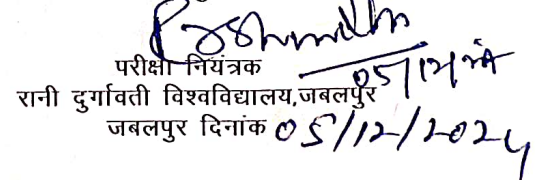 परीक्षा नियंत्रक
05/12/24
रानी दुर्गावती विश्वविद्यालय,जबलपुर
जबलपुर दिनांक 05/12/2024